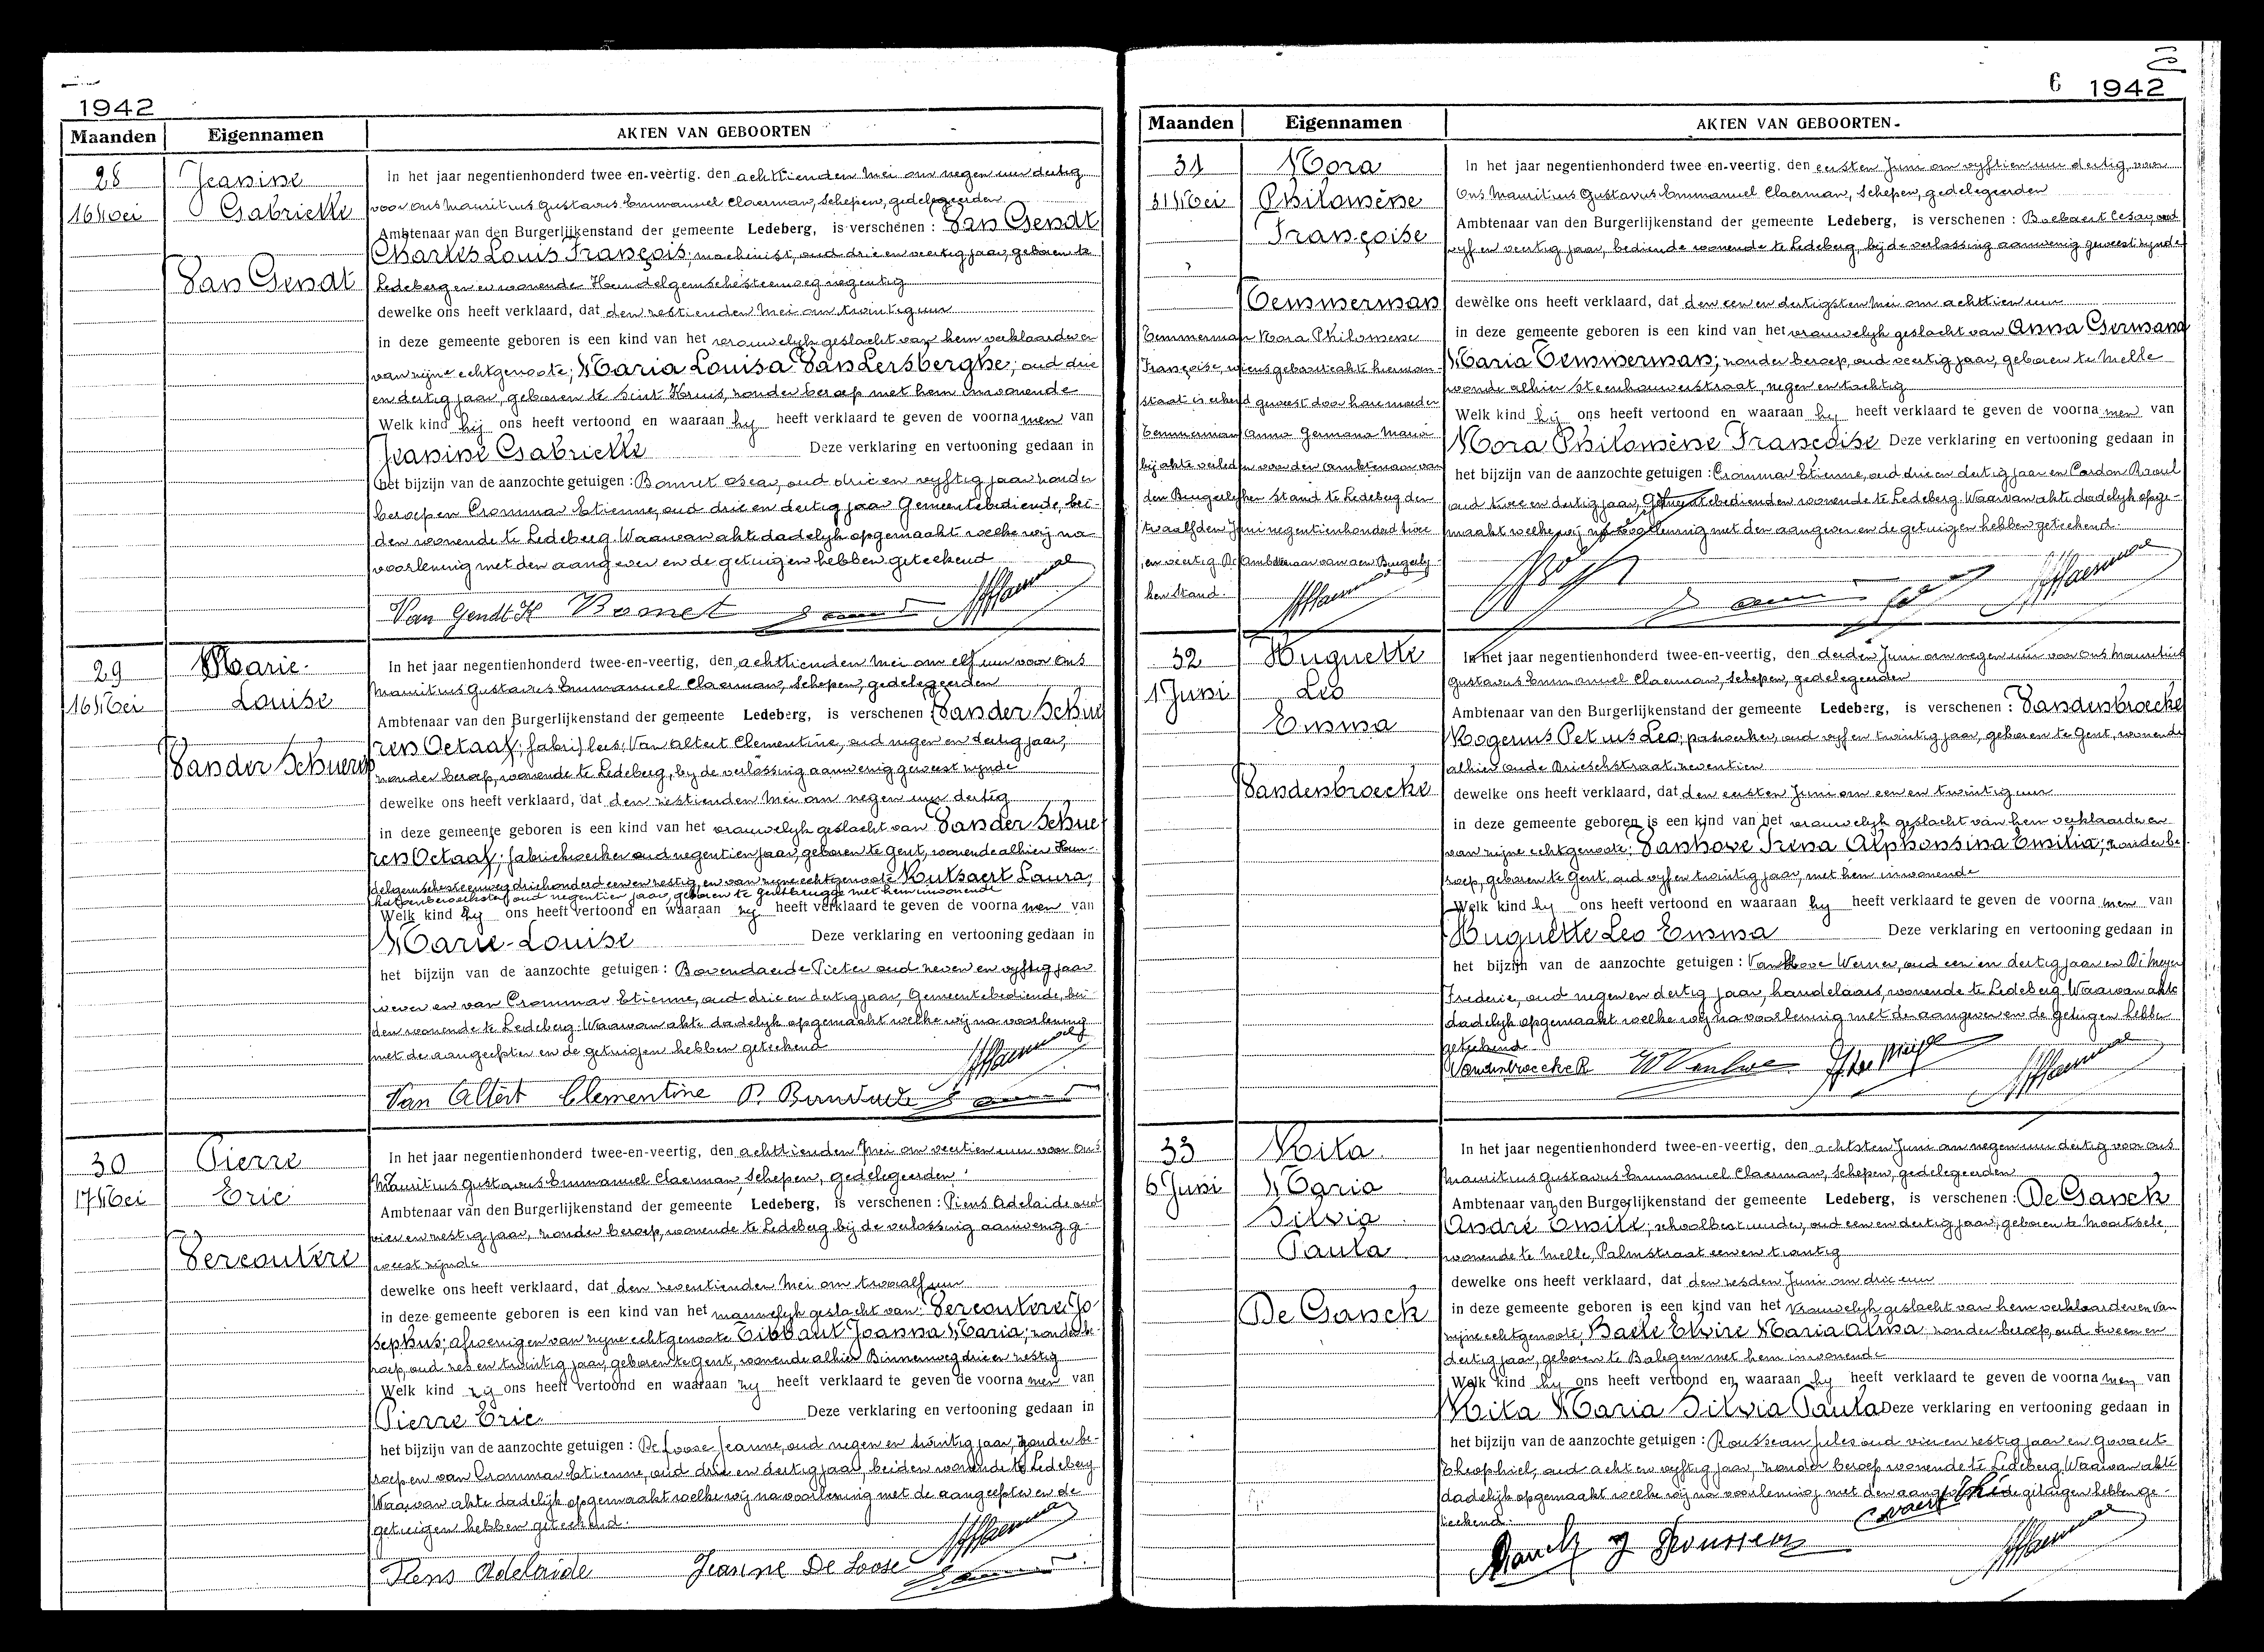 1942
Maanden Eigennamen AKTEN VAN GEBOORTEN
28
16 Mei
Jeanine
Gabrielle
Van Gendt
In het jaar negentienhonderd twee en-veertig. den achttienden Mei om negen uur dertig
voor ons Mauritius Gustavus Emmanuel Claerman, Schepen, gedelegeerden
Ambtenaar van den Burgerlijkenstand der gemeente Ledeberg, is verschenen : Van Gendt
Charles Louis François; machinist, oud drie en veertig jaar, geboren te
Ledeberg en er wonende Hundelgemschesteenweg negentig
dewelke ons heeft verklaard, dat den zestienden Mei om twintig uur
in deze gemeente geboren is een kind van het vrouwelijk geslacht van hem verklaarder en
van zijne echtgenoote; Maria Louisa Van Lersberghe; oud drie
en dertig jaar, geboren te Sint Kruis, zonder beroep met hem inwonende
Welk kind hij ons heeft vertoond en waaraan hij heeft verklaard te geven de voornamen van
Jeanine Gabrielle Deze verklaring en vertooning gedaan in
het bijzijn van de aanzochte getuigen : Bonnet Oscar, oud drie en vyftig jaar zonder
beroep en Crommar Etienne, oud drie en dertig jaar Gemeentebediende, bei-
den wonende te Ledeberg. Waarvan akte dadelijk opgemaakt welke wij na
voorlezing met den aangever en de getuigen hebben geteekend
Van Gendt K Bonnet
29
16 Mei
Marie-
Louise
Van der Schueren
In het jaar negentienhonderd twee-en-veertig, den achttienden Mei om elf uur voor ons
Mauritius Gustavus Emmanuel Claerman, Schepen, gedelegeerden
Ambtenaar van den Burgerlijkenstand der gemeente Ledeberg, is verschenen Van der Schue
ren Octaaf; fabri[ ]lees: Van Altert Clementine, oud negen en dertig jaar,
zonder beroep, wonende te Ledeberg, bij de verlossing aanwezig geweest zijnde
dewelke ons heeft verklaard, dat den zestienden Mei om negen uur dertig
in deze gemeente geboren is een kind van het vrouwelijk geslacht van Van der Schue
ren Octaaf; fabriekwerker oud negentien jaar, geboren te Gent, wonende alhier Hun-
delgemschesteenweg driehonderd een en zestig, en van zijne echtgenoote Rutsaert Laura,
oud negentien jaar, geboren te Gentbrugge met hem inwonende
Welk kind zij ons heeft vertoond en waaraan zij heeft verklaard te geven de voornamen van
Marie-Louise Deze verklaring en vertooning gedaan in
het bijzijn van de aanzochte getuigen : Bovendaerde Pieter oud zeven en vyftig jaar
wever en van Crommar Etienne, oud drie en dertig jaar, Gemeentebediende, bei
den wonende te Ledeberg. Waarvan akte dadelijk opgemaakt welke wij na voorlezing
met de aangeefster en de getuigen hebben geteekend
Van Altert Clementine
30
17 Mei
Pierre
Eric
Vercoutere
In het jaar negentienhonderd twee-en-veertig, den achttienden Mei om veertien uur voor ons
Mauritius Gustavus Emmanuel Claerman, Schepen, gedelegeerden
Ambtenaar van den Burgerlijkenstand der gemeente Ledeberg, is verschenen : Piens Adelaide oud
vier en zestig jaar, zonder beroep, wonende te Ledeberg bij de verlossing aanwezig ge
weest zijnde
dewelke ons heeft verklaard, dat den zeventienden Mei om twaalf uur
in deze gemeente geboren is een kind van het mannelijk geslacht van: Vercoutere Jo
sephus; afwezig en van zijne echtgenoote Tibbaut Joanna Maria; zonder be-
roep, oud zes en twintig jaar, geboren te Gent, wonende alhier Binnenweg drie en zestig
Welk kind zij ons heeft vertoond en waaraan zij heeft verklaard te geven de voornamen van
Pierre Eric Deze verklaring en vertooning gedaan in
het bijzijn van de aanzochte getuigen : De Loose Jeanne, oud negen en twintig jaar, zonder be-
roep en van Crommar Etienne, oud drie en dertig jaar, beiden wonende te Ledeberg
Waarvan akte dadelijk opgemaakt welke wij na voorlezing met de aangeefster en de
getuigen hebben geteekend.
Piens Adelaide Jeanne De Loose
6 1942
Maanden Eigennamen AKTEN VAN GEBOORTEN
31
31 Mei
Nora
Philomène
Françoise
Temmerman
Temmerman Nora Philomène
Françoise, wiens geboorteakte hiernen-
staat is erkend geweest door hare moeder
Temmerman Anna Germana Maria
bij akte verleden voor den Ambtenaar van
den Burgerlijken Stand te Ledeberg den
twaalfden Juni negentienhonderd twee
en veertig De Ambtenaar van den Burgerlij-
ken Stand.
In het jaar negentienhonderd twee en-veertig. den eersten Juni om vyftien uur dertig, voor
Ons Mauritius Gustavus Emmanuel Claerman, Schepen, gedelegeerden
Ambtenaar van den Burgerlijkenstand der gemeente Ledeberg, is verschenen : Boebaert Cesar, oud
vyf en veertig jaar, bediende wonende te Ledeberg, bij de verlossing aanwezig geweest zijnde
dewelke ons heeft verklaard, dat den een en dertigsten Mei om achttien uur
in deze gemeente geboren is een kind van het vrouwelijk geslacht van Anna Germana
Maria Temmerman; zonder beroep, oud veertig jaar, geboren te Melle
wonende alhier Steenhouwerstraat, negen en tachtig
Welk kind hij ons heeft vertoond en waaraan hij heeft verklaard te geven de voornamen van
Nora Philomène Françoise Deze verklaring en vertooning gedaan in
het bijzijn van de aanzochte getuigen : Crommar Etienne, oud drie en dertig jaar en Cardon Raoul
oud twee en dertig jaar, Gemeentebedienden wonende te Ledeberg. Waarvan akte dadelijk opge-
maakt welke wij na voorlezing met den aangever en de getuigen hebben geteekend.
32
1 Juni
Huguette
Leo
Emma
Vandenbroecke
In het jaar negentienhonderd twee-en-veertig, den derden Juni om negen uur voor ons Mauritius
Gustavus Emmanuel Claerman, Schepen, gedelegeerden
Ambtenaar van den Burgerlijkenstand der gemeente Ledeberg, is verschenen : Vandenbroecke
Rogerius Petrus Leo; paswerker, oud vyf en twintig jaar, geboren te Gent, wonende
alhier oude Brieschstraat, zeventien
dewelke ons heeft verklaard, dat den eersten Juni om een en twintig uur
in deze gemeente geboren is een kind van het vrouwelijk geslacht van hem verklaarder en
van zijne echtgenoote: Vanhove Irena Alphonsina Emilia; zonder be-
roep, geboren te Gent, oud vyf en twintig jaar, met hem inwonende
Welk kind hij ons heeft vertoond en waaraan hij heeft verklaard te geven de voornamen van
Huguette Leo Emma Deze verklaring en vertooning gedaan in
het bijzijn van de aanzochte getuigen : Vanhove Werner, oud een en dertig jaar en De Meyer
Frederic, oud negen en dertig jaar, handelaars, wonende te Ledeberg. Waarvan akte
dadelijk opgemaakt welke wij na voorlezing met de aangever en de getuigen hebben
geteekend
Vandenbroecke R
33
6 Juni
Rita
Maria
Silvia
Paula
De Ganck
In het jaar negentienhonderd twee-en-veertig, den achtsten Juni om negen uur dertig voor ons
Mauritius Gustavus Emmanuel Claerman, Schepen, gedelegeerden
Ambtenaar van den Burgerlijkenstand der gemeente Ledeberg, is verschenen : De Ganck
André Emile; schoolbestuurder, oud een en dertig jaar, geboren te Moortsele,
wonende te Melle, Palmstraat een en twintig
dewelke ons heeft verklaard, dat den zesden Juni om drie uur
in deze gemeente geboren is een kind van het vrouwelijk geslacht van hem verklaarder en van
zijne echtgenoote, Baele Elvire Maria Alma, zonder beroep, oud twee en
dertig jaar, geboren te Balegem met hem inwonende
Welk kind hij ons heeft vertoond en waaraan hij heeft verklaard te geven de voornamen van
Rita Maria Silvia Paula Deze verklaring en vertooning gedaan in
het bijzijn van de aanzochte getuigen : Rousseau Jules oud vier en zestig jaar en Govaert
Theophiel, oud acht en vyftig jaar, zonder beroep wonende te Ledeberg. Waarvan akte
dadelijk opgemaakt welke wij na voorlezing met den aangever en de getuigen hebben ge-
teekend.
J Rousseau